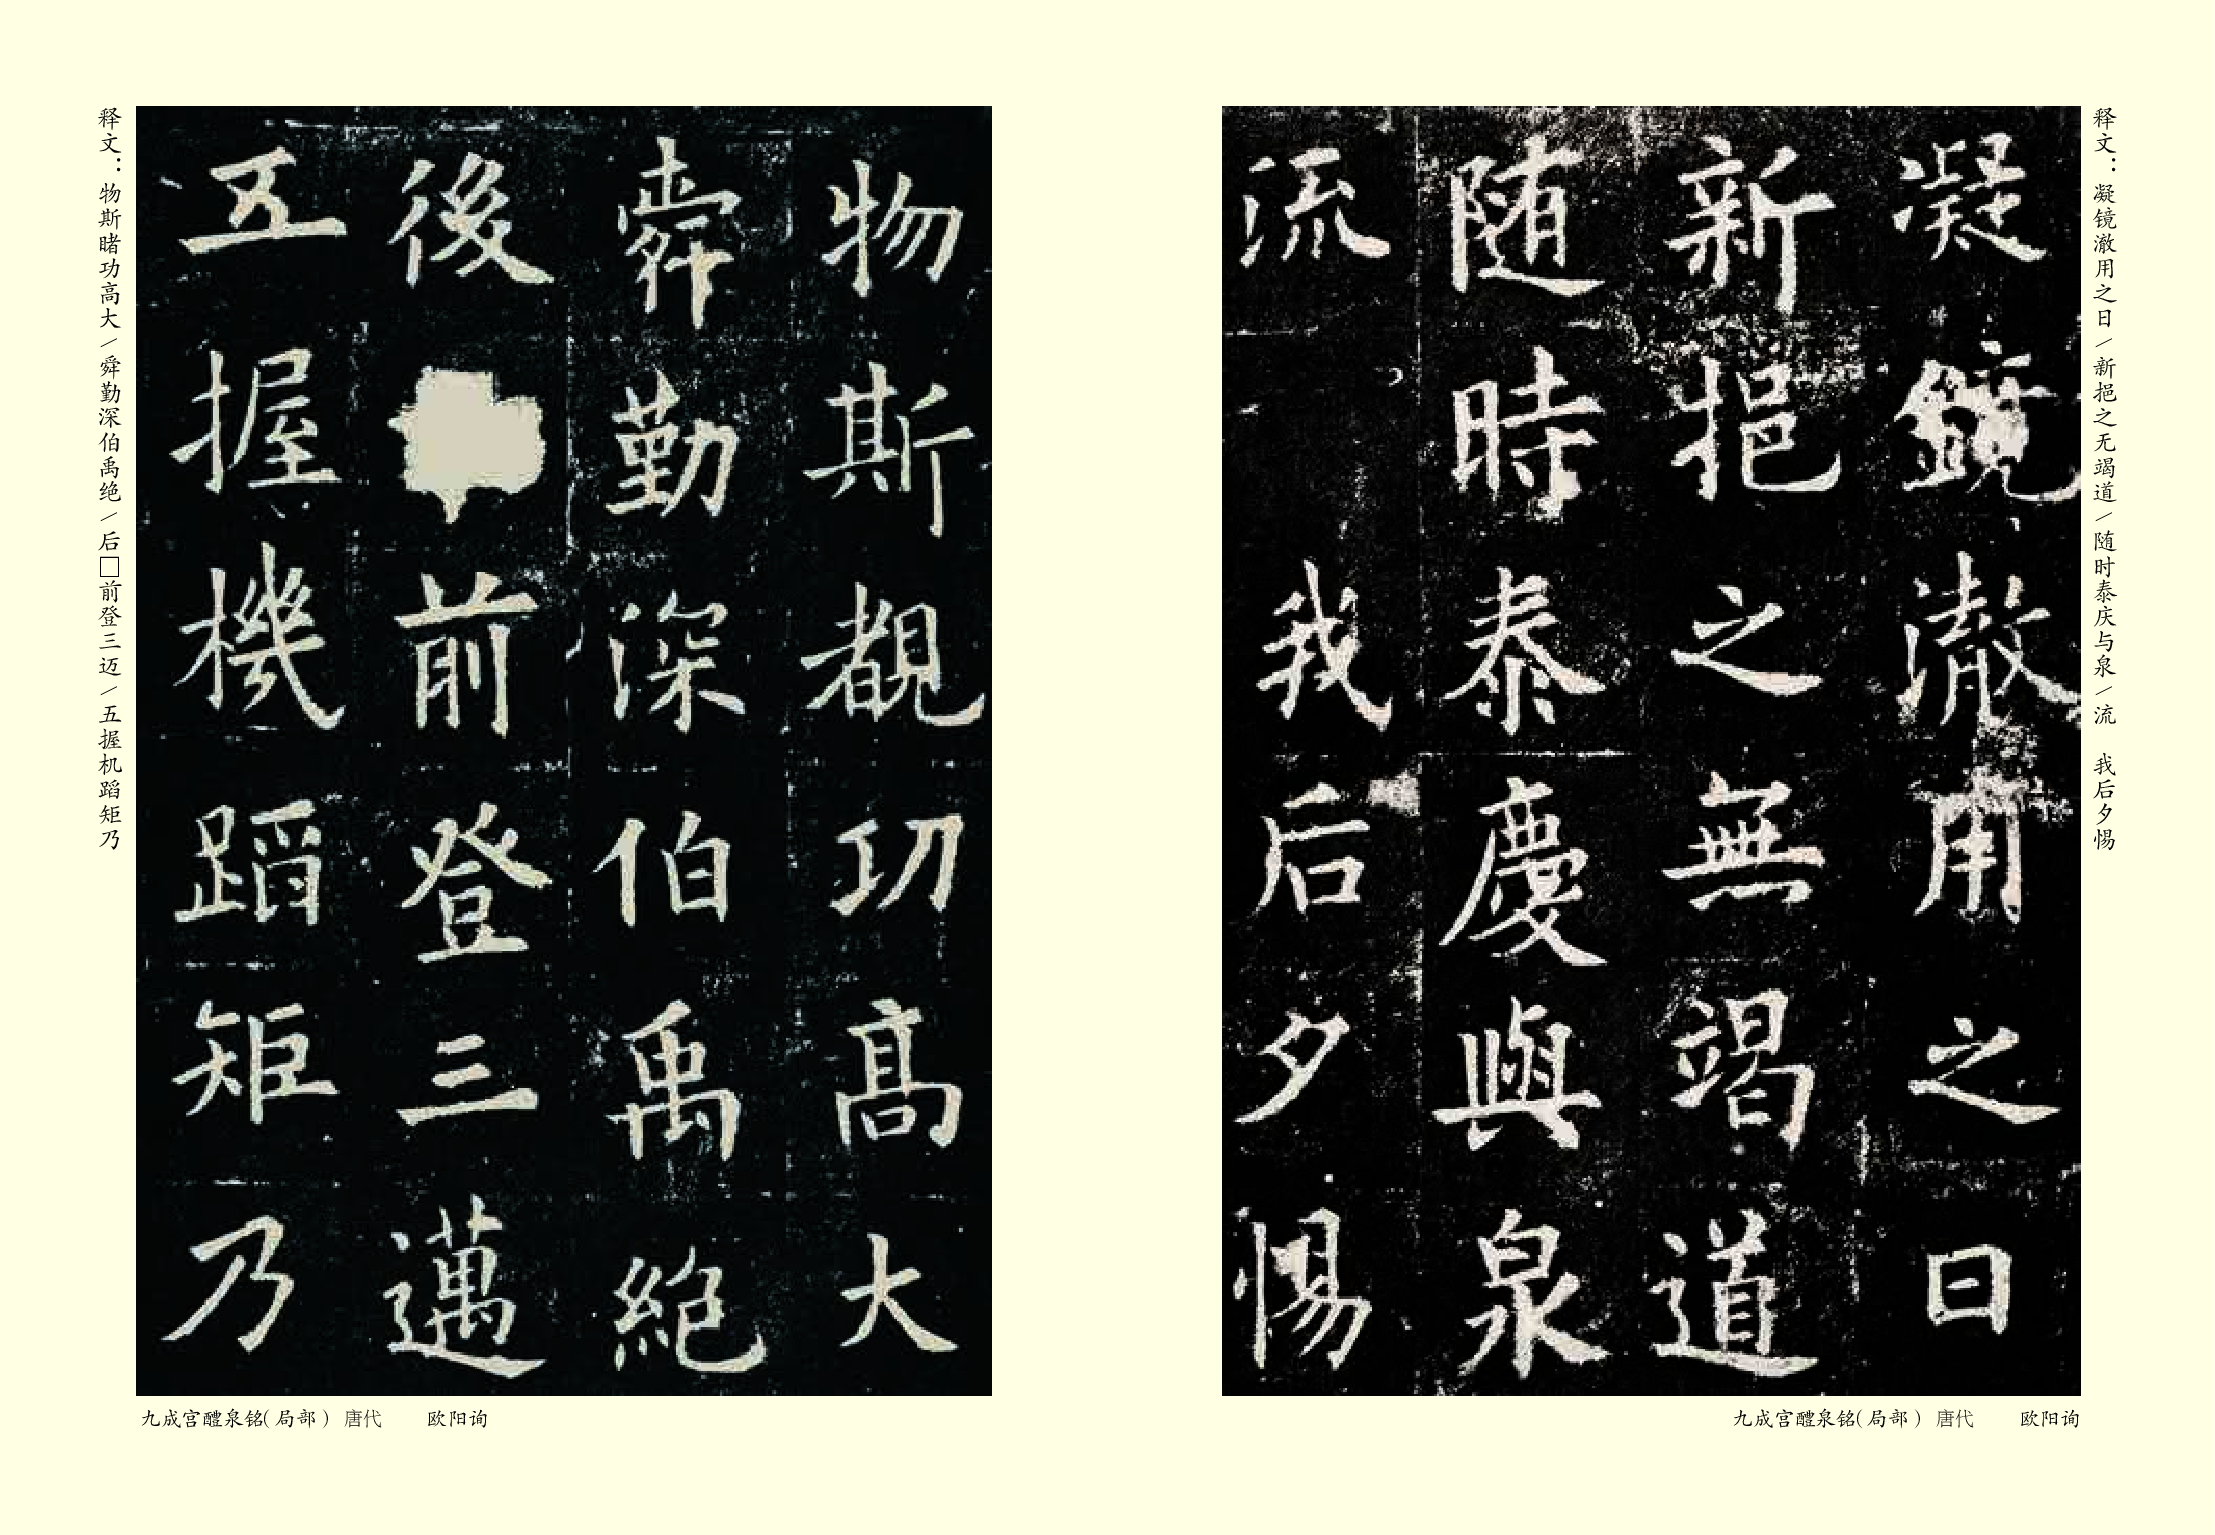 释文：凝镜澈用之日/新挹之无竭道/随时泰庆与泉/流 我后夕惕
凝鏡澈用之日
新挹之無竭道
随時泰慶與泉
流 我后夕惕
九成宫醴泉铭(局部) 唐代 欧阳询
物斯覩功髙大
舜勤深伯禹絶
後 前登三邁
五握機蹈矩乃
释文：物斯睹功高大/舜勤深伯禹绝/后□前登三迈/五握机蹈矩乃
九成宫醴泉铭(局部) 唐代 欧阳询